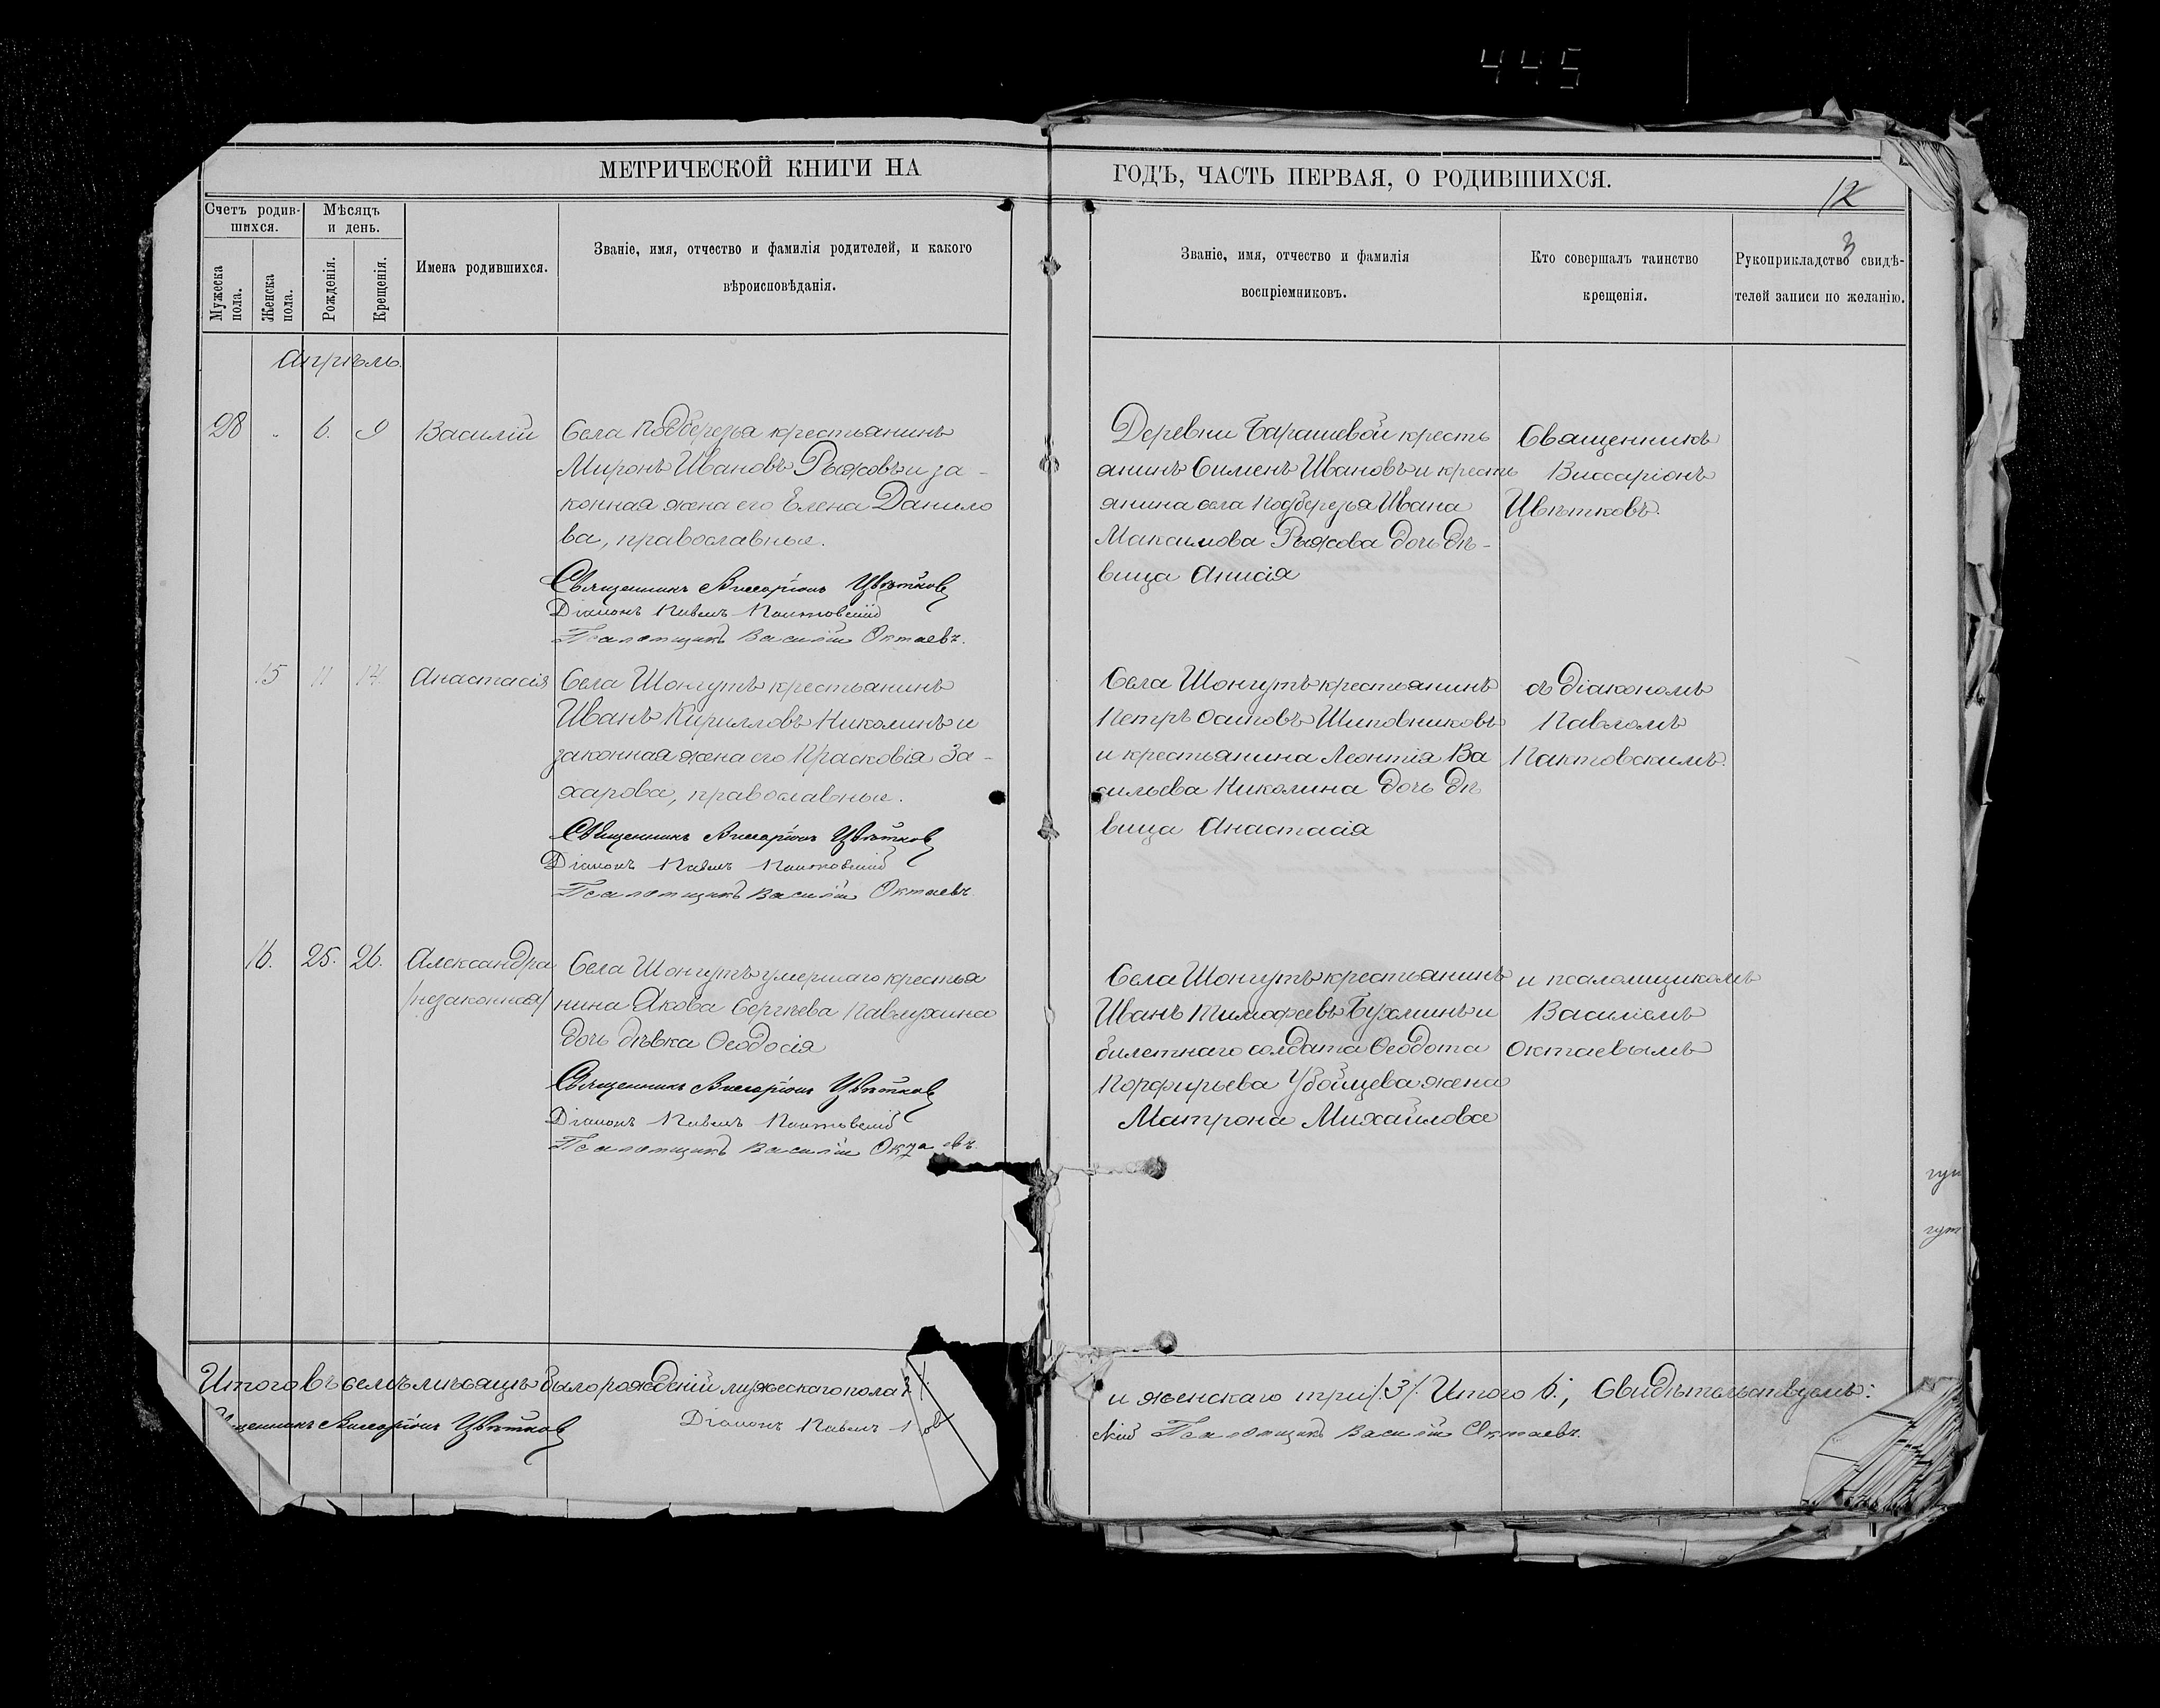 445
МЕТРИЧЕСКОЙ КНИГИ НА
ГОДЪ, ЧАСТЬ ПЕРВАЯ, О РОДИВШИХСЯ.
12
3
Счетъ родив-
шихся.
Мѣсяцъ
и день.
Мужеска
пола.
Женска
пола.
Рожденія.
Крещенія.
Имена родившихся.
Званіе, имя, отчество и фамилія родителей, и какого
вѣроисповѣданія.
Званіе, имя, отчество и фамилія
воспріемниковъ.
Кто совершалъ таинство
крещенія.
Рукоприкладство свидѣ-
телей записи по желанію.
Апрѣль.
28 " 6. 9 Василій
Села Подберезья крестьянинъ
Миронъ Ивановъ Рыжовъ и за-
конная жена его Елена Данило
ва, православные.
Священникъ Виссаріонъ Цвѣтковъ
Діаконъ Павелъ Пактовскій
Псаломщикъ Василій Октаевъ.
Деревни Барашевой кресть
янинъ Сименъ Ивановъ и кресть
янина села Подберезья Ивана
Максимова Рыжова дочь дѣ-
вица Анисія
Священникъ
Виссаріонъ
Цвѣтковъ.
15 11 14. Анастасія
Села Шонгутъ крестьянинъ
Иванъ Кирилловъ Николинъ и
законная жена его Прасковія За-
харова, православные.
Священникъ Виссаріонъ Цвѣтковъ
Діаконъ Павелъ Пактовскій
Псаломщикъ Василій Октаевъ.
Села Шонгутъ крестьянинъ
Петръ Осиповъ Шиповниковъ
и крестьянина Леонтія Ва
сильева Николина дочь дѣ
вица Анастасія
съ діакономъ
Павломъ
Пактовскимъ.
16. 25. 26. Александра
/незаконная/
Села Шонгутъ умершаго крестья
нина Якова Сергѣева Павлухина
дочь дѣвка Ѳеодосія
Священникъ Виссаріонъ Цвѣтковъ
Діаконъ Павелъ Пактовскій
Псаломщикъ Василій Октаевъ.
Села Шонгутъ крестьянинъ
Иванъ Тимофеевъ Бухминъ и
билетнаго солдата Ѳеодота
Порфирьева Убойцева жена
Матрона Михайлова
и псаломщикомъ
Василіемъ
Октаевымъ
гун
гут
Итого въ семъ мѣсяцѣ было рожденій мужескаго пола
и женскаго три /.3/. Итого 6., Свидѣтельствуемъ:
щенникъ Виссаріонъ Цвѣтковъ
Діаконъ Павелъ
скій Псаломщикъ Василій Октаевъ.